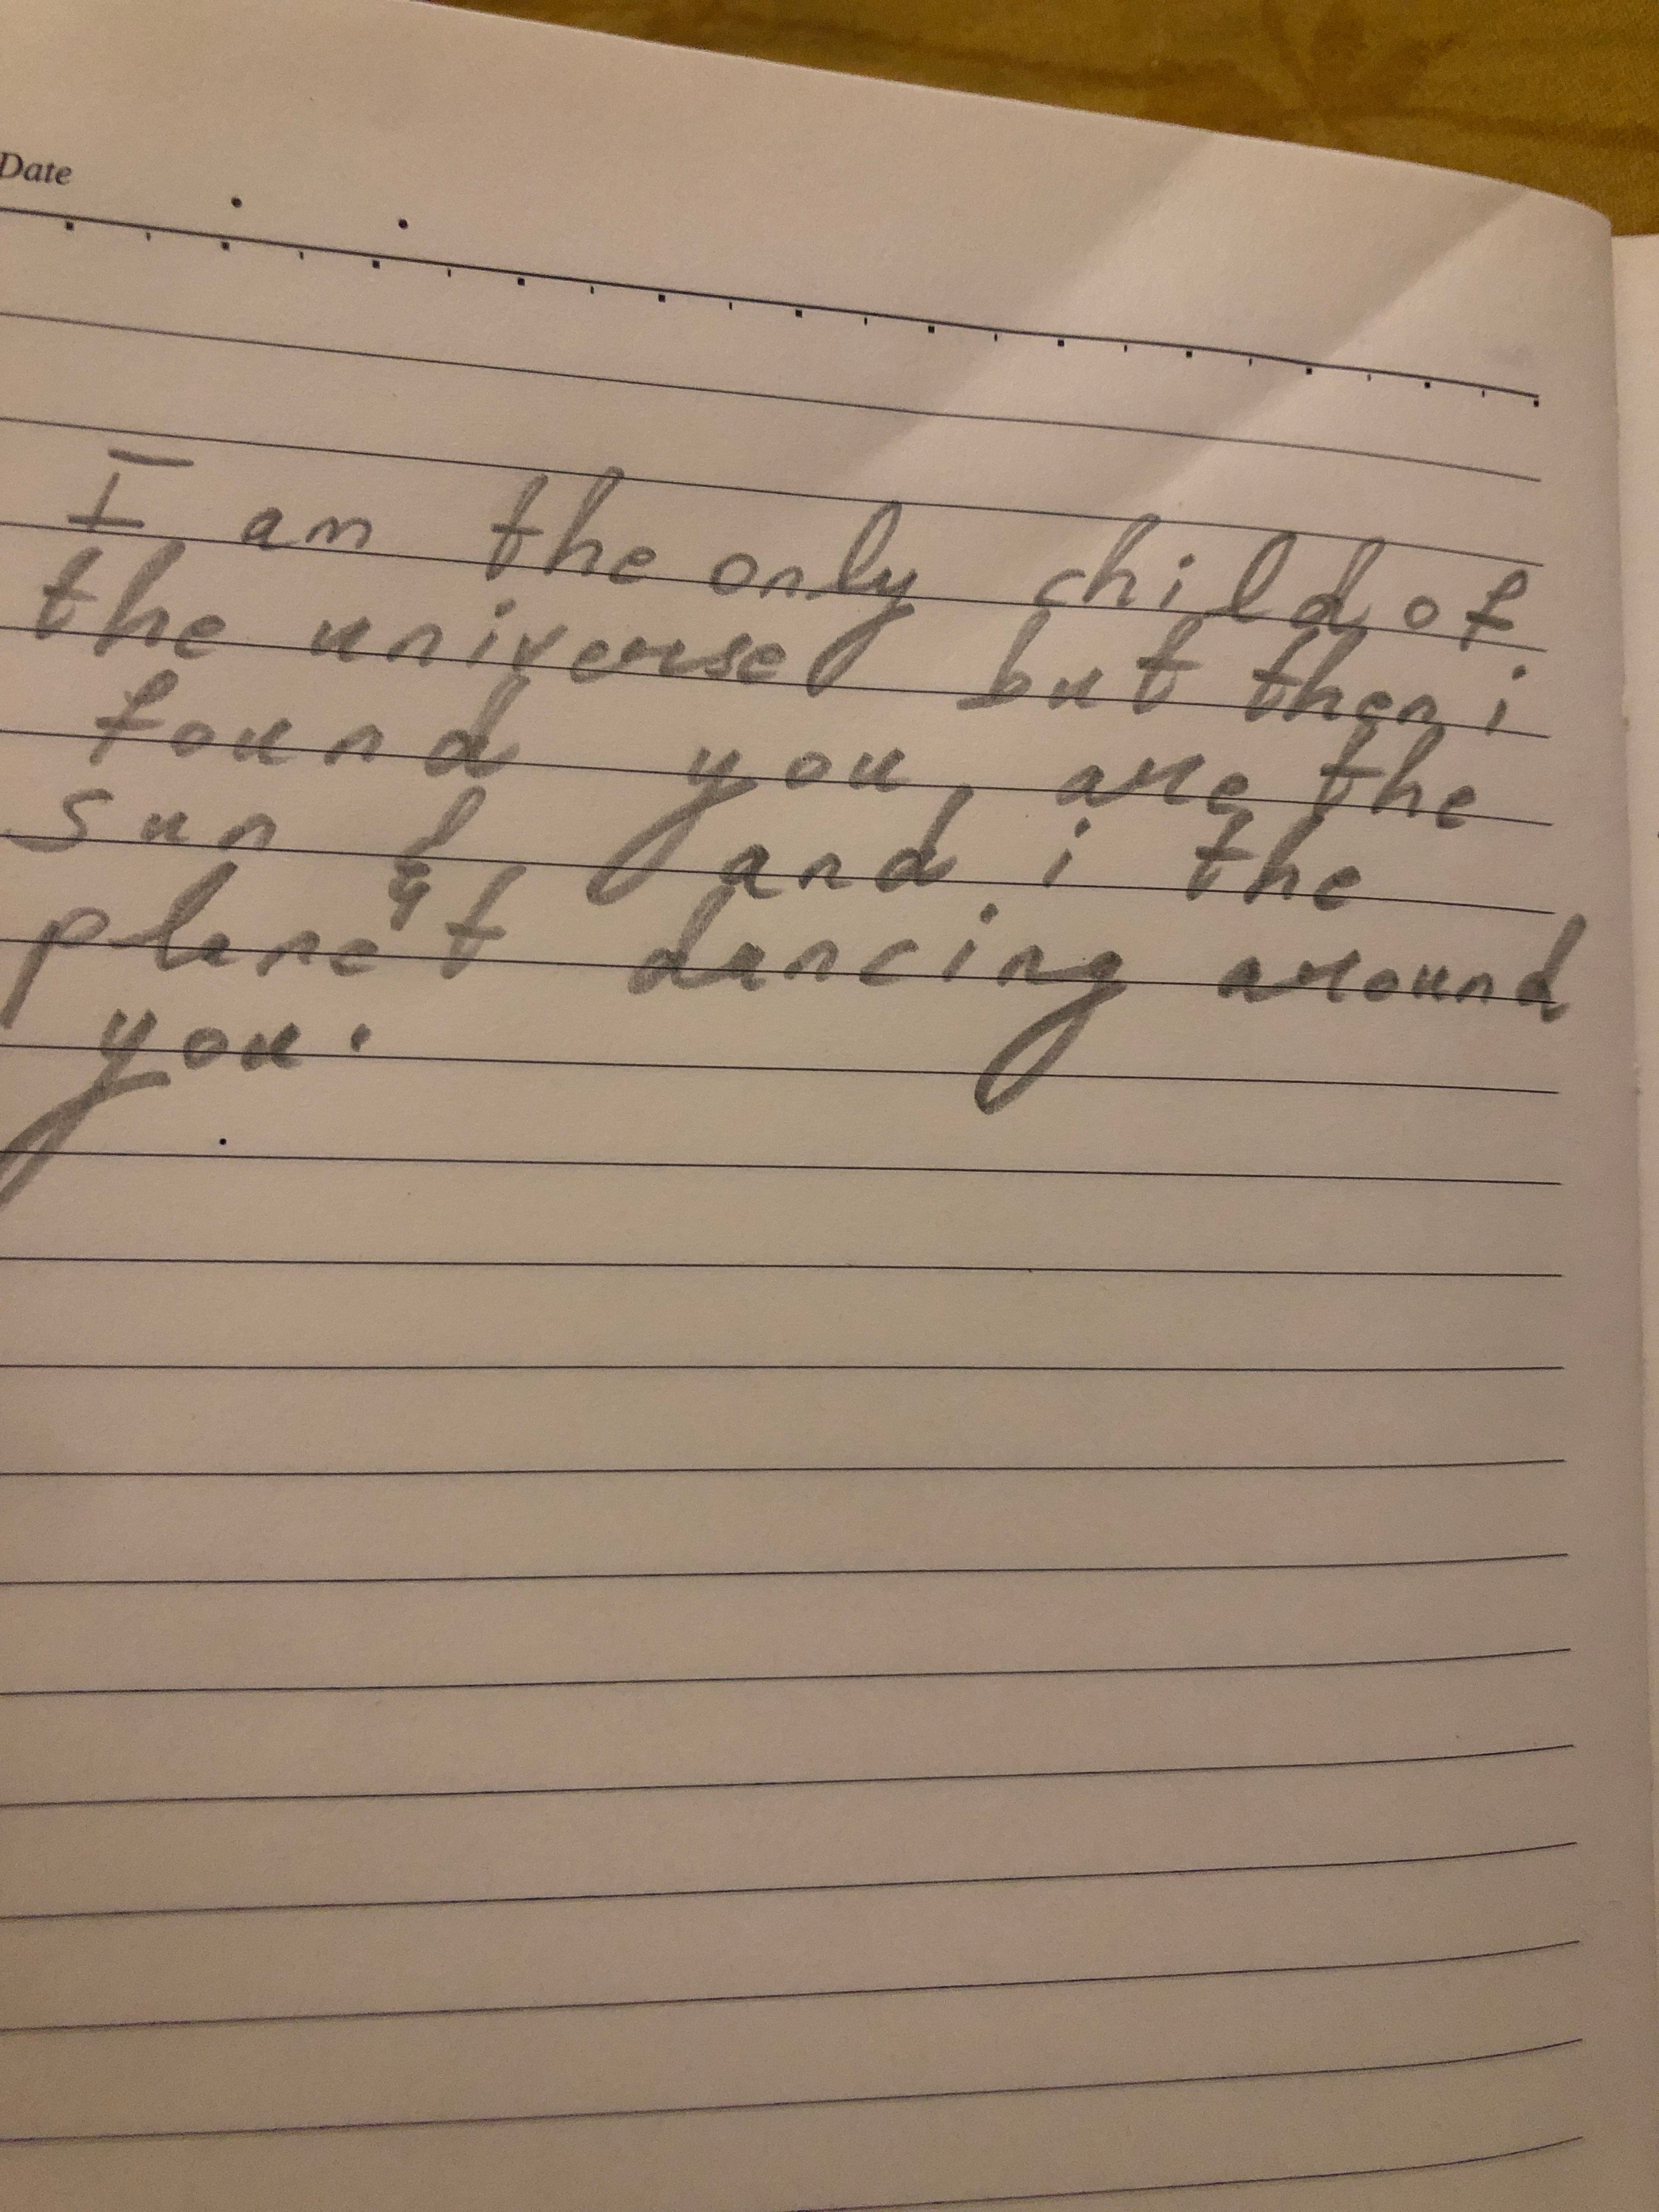 Date
I am the only child of
the universe but then i
found you, are the
sun & and i the
planet dancing around
you.